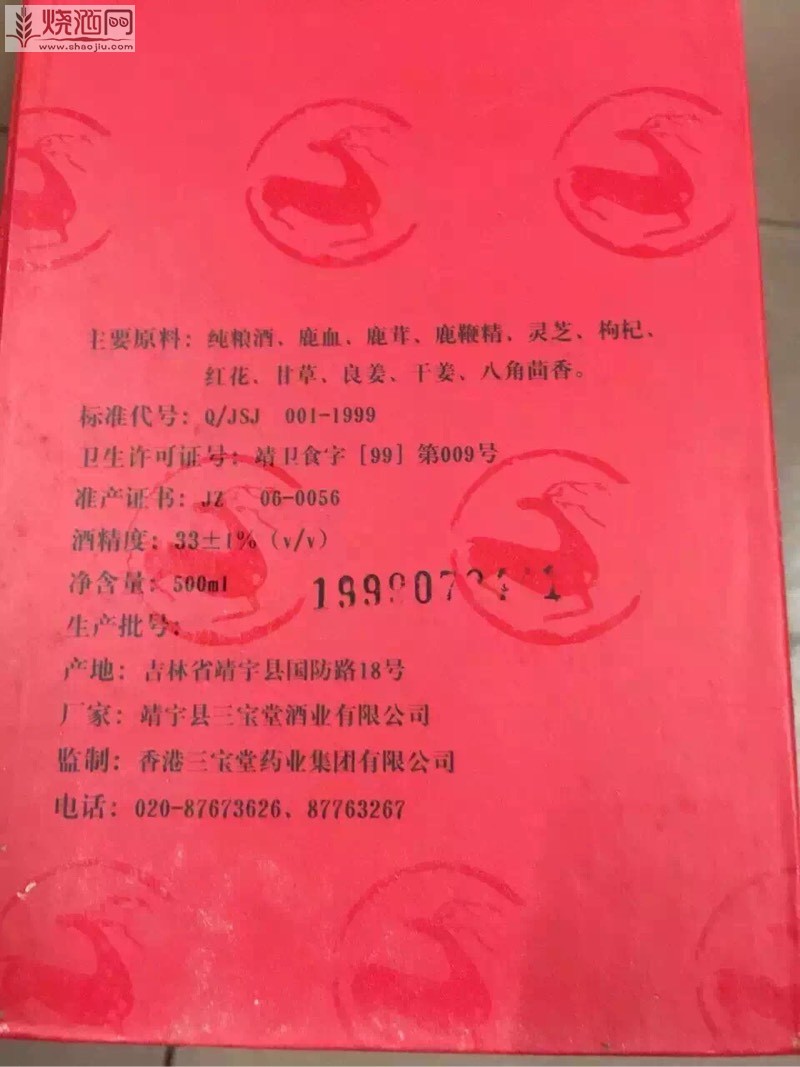 烧酒网
www.shaojiu.com
主要原料：纯粮酒、鹿血、鹿茸、鹿鞭精、灵芝、枸杞、
红花、甘草、良姜、干姜、八角茴香。
标准代号：Q/JSJ 001-1999
卫生许可证号：靖卫食字［99］第009号
准产证书：JZ 06-0056
酒精度：33±1%（v/v）
净含量：500ml
生产批号：
产地：吉林省靖宇县国防路18号
厂家：靖宇县三宝堂酒业有限公司
监制：香港三宝堂药业集团有限公司
电话：020-87673626、87763267